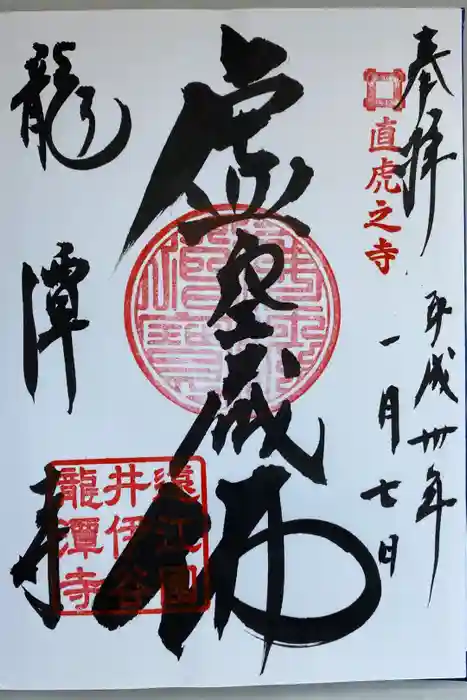 奉拝
直虎之寺
平成卅年
一月七日
虚空蔵佛
龍潭寺
遠江国
井伊谷
龍潭寺